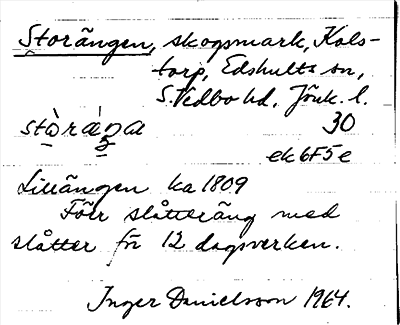 Storängen, skogsmark, Kols-
torp, Edshults sn,
S. Vedbo hd, Jönk. l.
stòráŋa 30
ek 6F5e
Lillängen ka 1809
Förr slåtteräng med
slåtter för 12 dagsverken.
Inger Danielsson 1964.